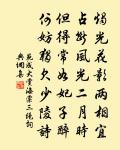 燭光花影兩相宜
占斷風光二月時
但得常如妃子醉
何妨獨欠少陵詩
范成大賞海棠三絕詞
典網集